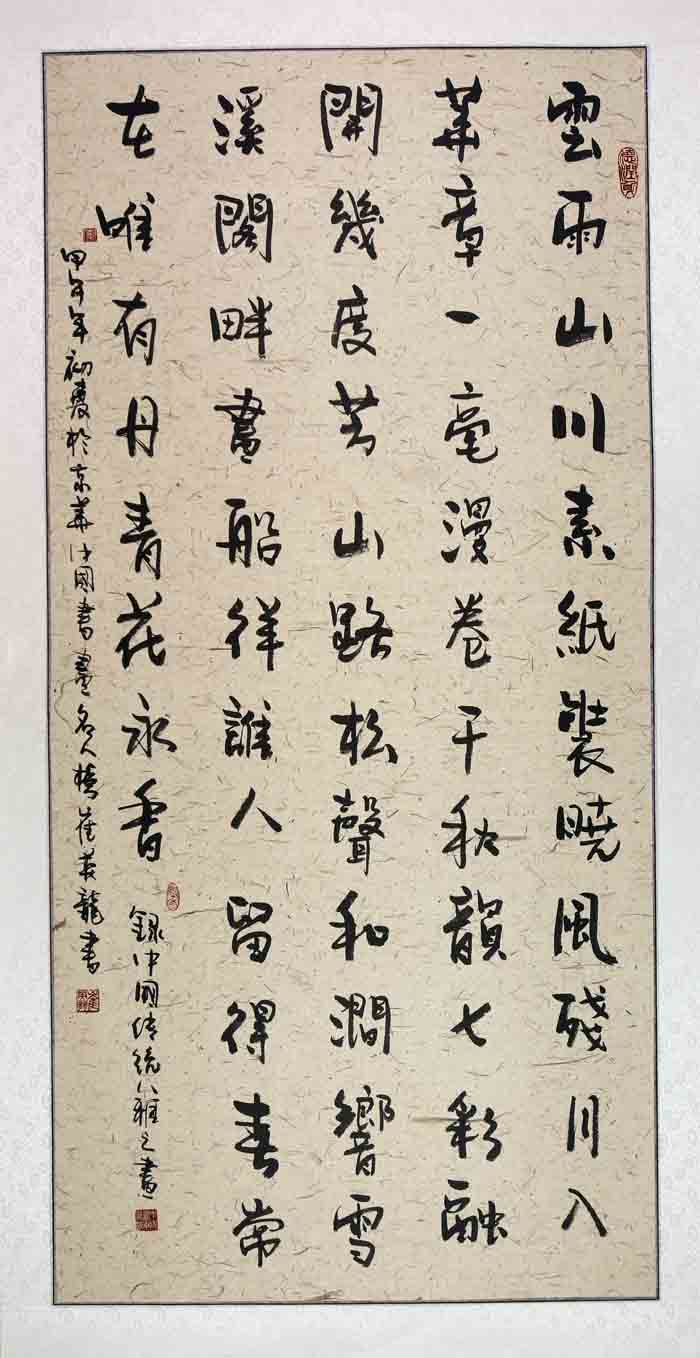 雲雨山川素紙裝曉風殘月入
華章一毫漫卷千秋韻七彩融
開幾度芳山路松聲和澗響雪
溪閣畔畫船徉誰人留得春常
在唯有丹青花永香
錄中國傳統八雅之畫
甲午年初夏於京華中國書畫名人樓崔英龍書